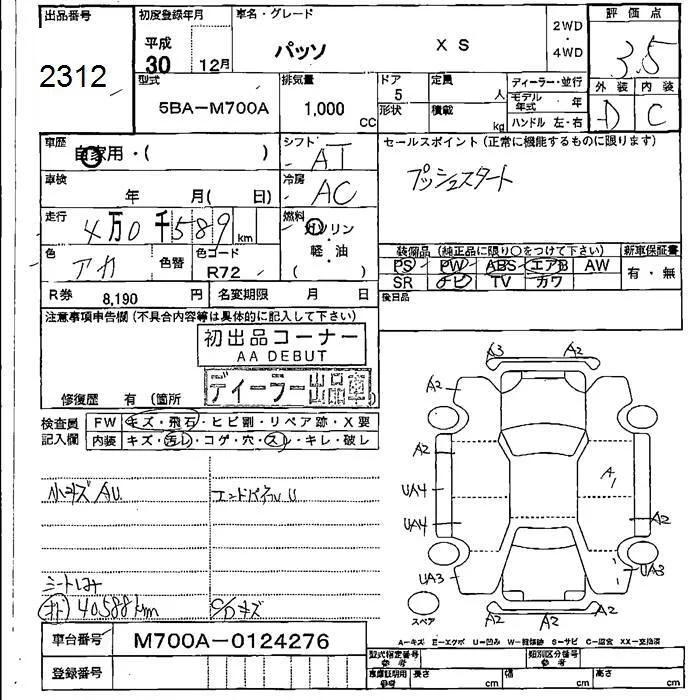 出品番号
2312
初度登録年月
平成
30 12月
車名・グレード
パッソ X S
2WD
・
4WD
評価点
3.5
外装 内装
D C
型式
5BA-M700A
排気量
1,000 CC
ドア
5
形状
定員
人
積載
kg
ディーラー・並行
モデル年式 年
ハンドル 左・右
車歴
自家用・( )
シフト
AT
車検
年 月( 日)
冷房
AC
走行
4万0千589 km
燃料
ガソリン
・
軽・油
( )
色
アカ
色替
色コード
R72
R券 8,190 円
名変期限 月 日
セールスポイント(正常に機能するものに限ります)
プッシュスタート
装備品(純正品に限り○をつけて下さい)
PS PW ABS エアB AW
SR ナビ TV カワ
新車保証書
有・無
後日品
注意事項申告欄(不具合内容等は具体的に記入して下さい)
初出品コーナー
AA DEBUT
ディーラー出品車
修復歴 有 (箇所 )
検査員
記入欄
FW キズ・飛石・ヒビ割・リペア跡・X要
内装 キズ・汚レ・コゲ・穴・スレ・キレ・破レ
小キズ AU
エンドパネル U
シートしみ
オド 40588km
C/Dキズ
A3 A2
A2 A2
A2
UA4
A1
UA4
A2
UA3
UA3
A2 A2
スペア
A-キズ E-エクボ U-凹み W-補修跡 S-サビ C-腐食 XX-交換済
車台番号 M700A-0124276
登録番号
型式指定番号
参考
類別区分番号
参考
車庫証明用
参考
長さ cm
幅 cm
高さ cm